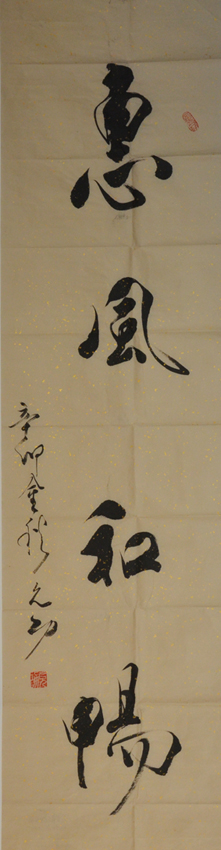 惠風和暢
辛卯金秋元功